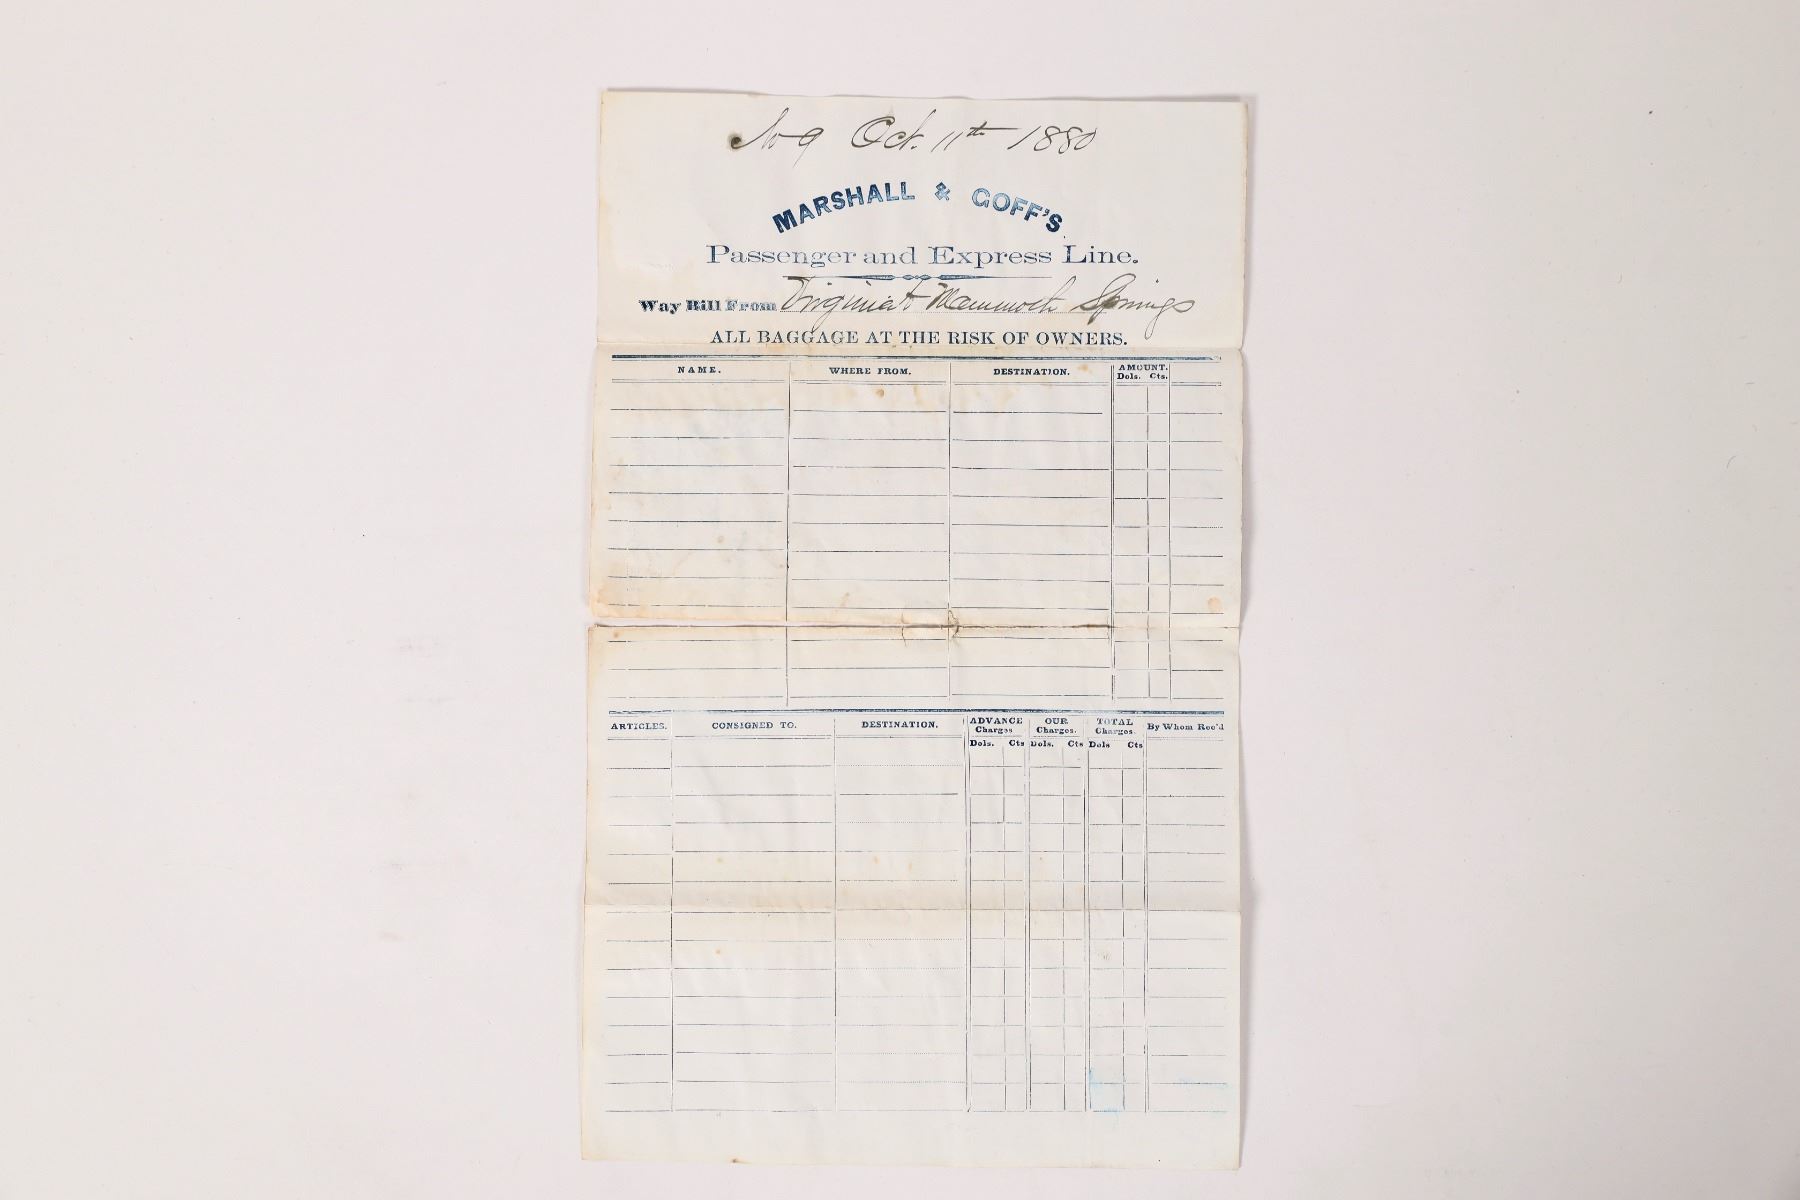 No 9 Oct. 11th 1880
MARSHALL & GOFF'S
Passenger and Express Line.
Way Bill From Virginia t Mammoth Springs
ALL BAGGAGE AT THE RISK OF OWNERS.
NAME. WHERE FROM. DESTINATION. AMOUNT.
Dols. Cts.
ARTICLES. CONSIGNED TO. DESTINATION. ADVANCE Charges OUR Charges. TOTAL Charges. By Whom Rec'd
Dols. Cts Dols. Cts Dols Cts